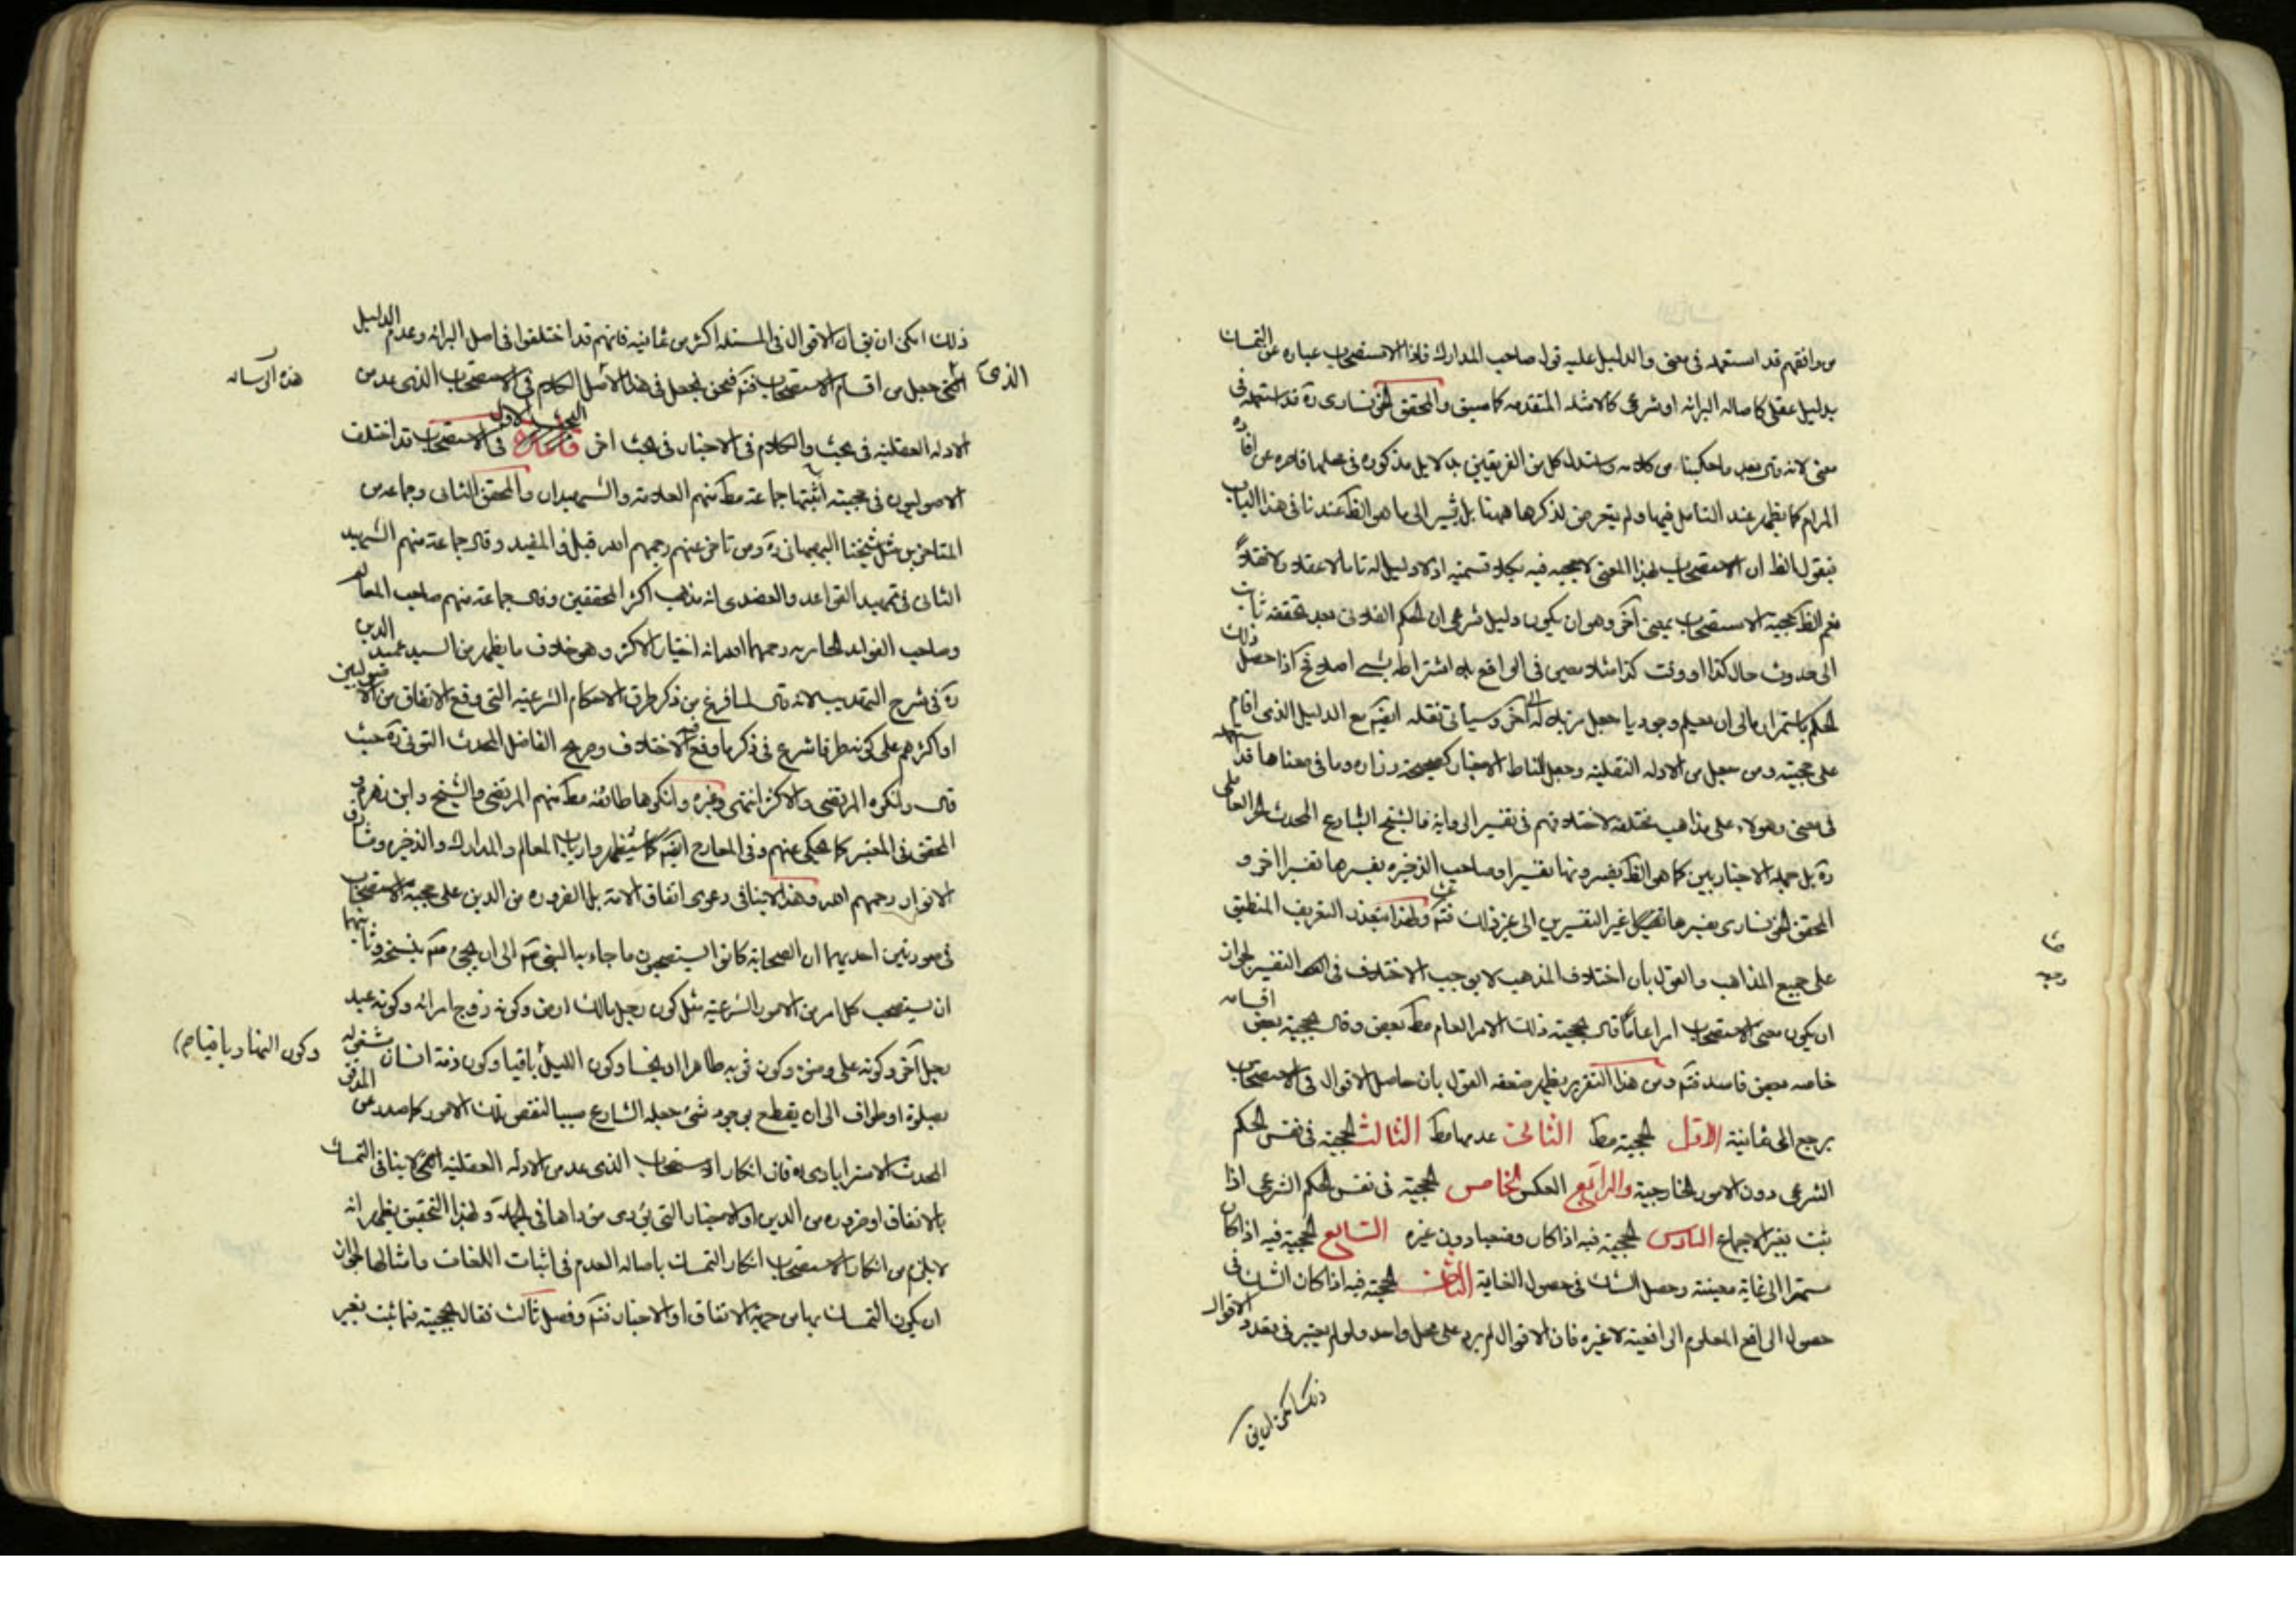 من وافقهم قد استعمله في معنى والدليل عليه قول صاحب المدارك فاذا الاستصحاب عبارة عن التمسك
بدليل عقلي كاصالة البرائة او شرعي كالامثلة المتقدمة كما سبق والمحقق الخونساري ره قد استعمله في
معنى لانه قال بعد ما حكينا من كلامه واستدل كل من الفريقين بدلايل مذكورة في محلها قاصرة عن افادة
المرام كما يظهر عند التامل فيها ولم نتعرض لذكرها ههنا بل نشير الى ما هو الظ عندنا في هذا الباب
فنقول الظ ان الاستصحاب بهذا المعنى لا حجية فيه بكلا قسميه اذ لا دليل له تاما لا عقلا ولا نقلا
نعم الظ حجية الاستصحاب بمعنى آخر وهو ان يكون دليل شرعي ان الحكم الفلاني بعد تحققه ثابت
الى حدوث حال كذا او وقت كذا مثلا معين في الواقع بلا اشتراطه بشيء اصلا فح اذا حصل ذلك
الحكم باستمراره الى ان يعلم وجود ما جعل مزيلا له الى آخر وسيأتي نقله ايضا مع الدليل الذي اقام
على حجيته ومن جعل من الادلة النقلية وجعل المناط الاخبار كصحيحة زرارة وما في معناها قد استعمله
في معنى وهولاء على مذاهب مختلفة لاختلافهم في تفسير الرواية فالشيخ الشارع المحدث الحر العاملي
ره بل جملة الاخباريين كما هو الظ يفسرونها تفسيرا وصاحب الذخيرة يفسرها تفسيرا اخر و
المحقق الخونساري يفسرها غير التفسيرين الى غير ذلك فتم ولهذا يتعذر التعريف المنطبق
على جميع المذاهب والقول بان اختلاف المذهب لا يوجب الاختلاف في التفسير لجواز
ان يكون معنى الاستصحاب امرا عاما قال بحجية ذلك الامر العام مط بعض وقال بحجية بعض اقسامه
خاصة بعض فاسد فتم ومن هذا التقرير يظهر ضعف القول بان حاصل الاقوال في الاستصحاب
يرجع الى ثمانية الاول الحجية مط الثاني عدمها مط الثالث الحجية في نفس الحكم
الشرعي دون الامور الخارجية والرابع العكس الخامس الحجية في نفس الحكم الشرعي اذا
ثبت بغير الاجماع السادس الحجية فيه اذا كان وضعيا دون غيره السابع الحجية فيه اذا كان
مستمرا الى غاية معينة وحصل الشك في حصول الغاية الثامن الحجية فيه اذا كان الشك في
حصول الرافع المعلوم الرافعية لا غيره فان الاقوال لم يرد على محل واحد ولو لم يعتبر في تعدد الاقوال
ذلك امكن ان يق
ذلك امكن ان يق ان الاقوال في المسئلة اكثر من ثمانية فانهم قد اختلفوا في اصل البرائة وعدم الدليل
الذي جعل من اقسام الاستصحاب فتم فنحن نجعل في هذا الاصل الكلام في الاستصحاب الذي عد من
هذه الرسالة
الادلة العقلية في بحث والكلام في الاخبار في بحث اخر البحث الاول في الاستصحاب قد اختلف
الاصوليون في حجيته اثبتها جماعة مط منهم العلامة والشهيدان والمحقق الثاني وجماعة من
المتاخرين مثل شيخنا البهبهاني ره ومن تاخر عنهم رحمهم الله قبل والمفيد وقال جماعة منهم الشهيد
الثاني في تمهيد القواعد والعضدي انه مذهب اكثر المحققين وقال جماعة منهم صاحب المعالم
وصاحب الفوائد الحايرية رحمهما الله انه اختيار الاكثر وهو خلاف ما يظهر من السيد عميد الدين
ره في شرح التهذيب لانه قال لما فرغ من ذكر طرق الاحكام الشرعية التي وقع الاتفاق من الاصوليين
او اكثرهم على كونه طرقا شرع في ذكر ما وقع فيه الاختلاف وصريح الفاضل المحدث التوني ره حيث
قال وانكره المرتضى والاكثر انتهى وغيره وانكرها طائفة مط منهم المرتضى والشيخ وابن زهرة و
المحقق في المعتبر كما حكي عنهم وفي المعارج ايضا كما سيظهر وارباب المعالم والمدارك والذخيرة ومشارق
الانوار رحمهم الله وهذا لا ينافي دعوى اتفاق الامة بل الضرورة من الدين على حجية الاستصحاب
في صورتين احديهما ان الصحابة كانوا يستصحبون ما جاء به النبي ص الى ان يجئ ص بنسخه وثانيهما
ان يستصحب كل امر من الامور الشرعية مثل كون رجل مالك ارض وكونه زوج امرائة وكونه عبد
رجل آخر وكونه على وضوء وكون ثوبه طاهرا او نجسا وكون الليل باقيا وكون ذمة انسان مشغولة
وكون النهار باقيا
بصلوة او طواف الى ان يقطع بوجود شئ جعله الشارع سببا لنقض تلك الامور كما صدر عن المدقق
المحدث الاسترابادي ره فان انكار الاستصحاب الذي عد من الادلة العقلية لا ينافي التمسك
بالاتفاق او ضرورة من الدين او الاخبار التي يؤدى مؤداها في الجملة ولهذا التحقيق يظهر انه
لا يلزم من انكار الاستصحاب انكار التمسك باصالة العدم في اثبات اللغات وامثالها لجواز
ان يكون التمسك بها من جهة الاتفاق او الاخبار فتم وفصل ثالث فقال بحجيته فيما ثبت بغير